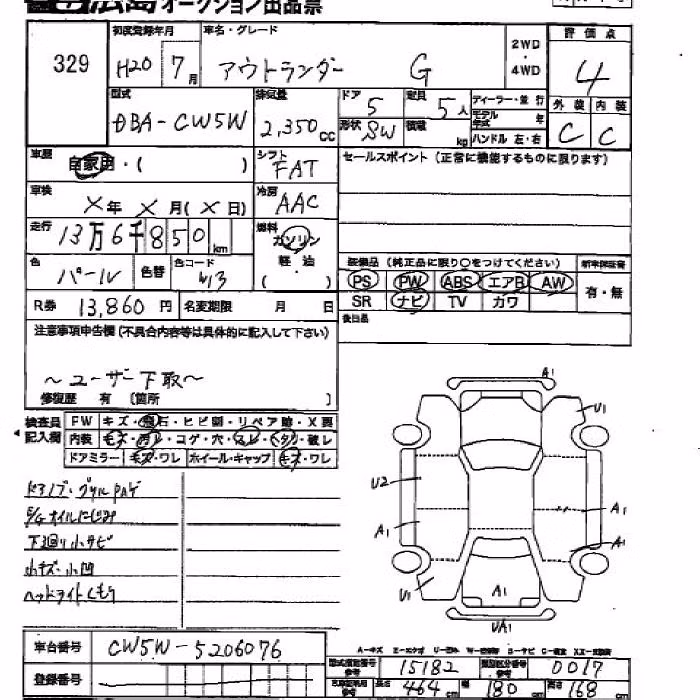 広島 オークション出品票
329
初度登録年月 H20 7月
車名・グレード アウトランダー G
2WD
・
4WD
評価点 4
外装 内装
C C
型式 DBA-CW5W
排気量 2,350cc
ドア 5
定員 5人
形状 SW
積載 kg
ディーラー・並行
モデル年式 年
ハンドル 左・右
車歴 自家用・( )
シフト FAT
セールスポイント (正常に機能するものに限ります)
車検 X年 X月(X日)
冷房 AAC
走行 13万6千850km
燃料 ガソリン
軽・油
( ・ )
色 パール 色替
色コード W13
装備品 (純正品に限り○をつけてください)
新車保証書
PS PW ABS エアB AW
有・無
SR ナビ TV カワ
R券 13,860円 名変期限 月 日
後日品
注意事項申告欄(不具合内容等は具体的に記入して下さい)
〜ユーザー下取〜
修復歴 有 [箇所 ]
検査員記入欄
FW キズ・飛石・ヒビ割・リペア跡・X要
内装 キズ・汚レ・コゲ・穴・スレ・ヘタリ・破レ
ドアミラー キズ・ワレ ホイール・キャップ キズ・ワレ
E/Gオイルにじみ
下廻り小サビ
小キズ・小凹
ヘッドライトくもり
A1
U1
U2
A1
A1
A1
U1
A1
UA1
車台番号 CW5W-5206076
登録番号
型式指定番号 参考 15182
類別区分番号 参考 0017
長さ 464cm
180cm
高さ 168cm